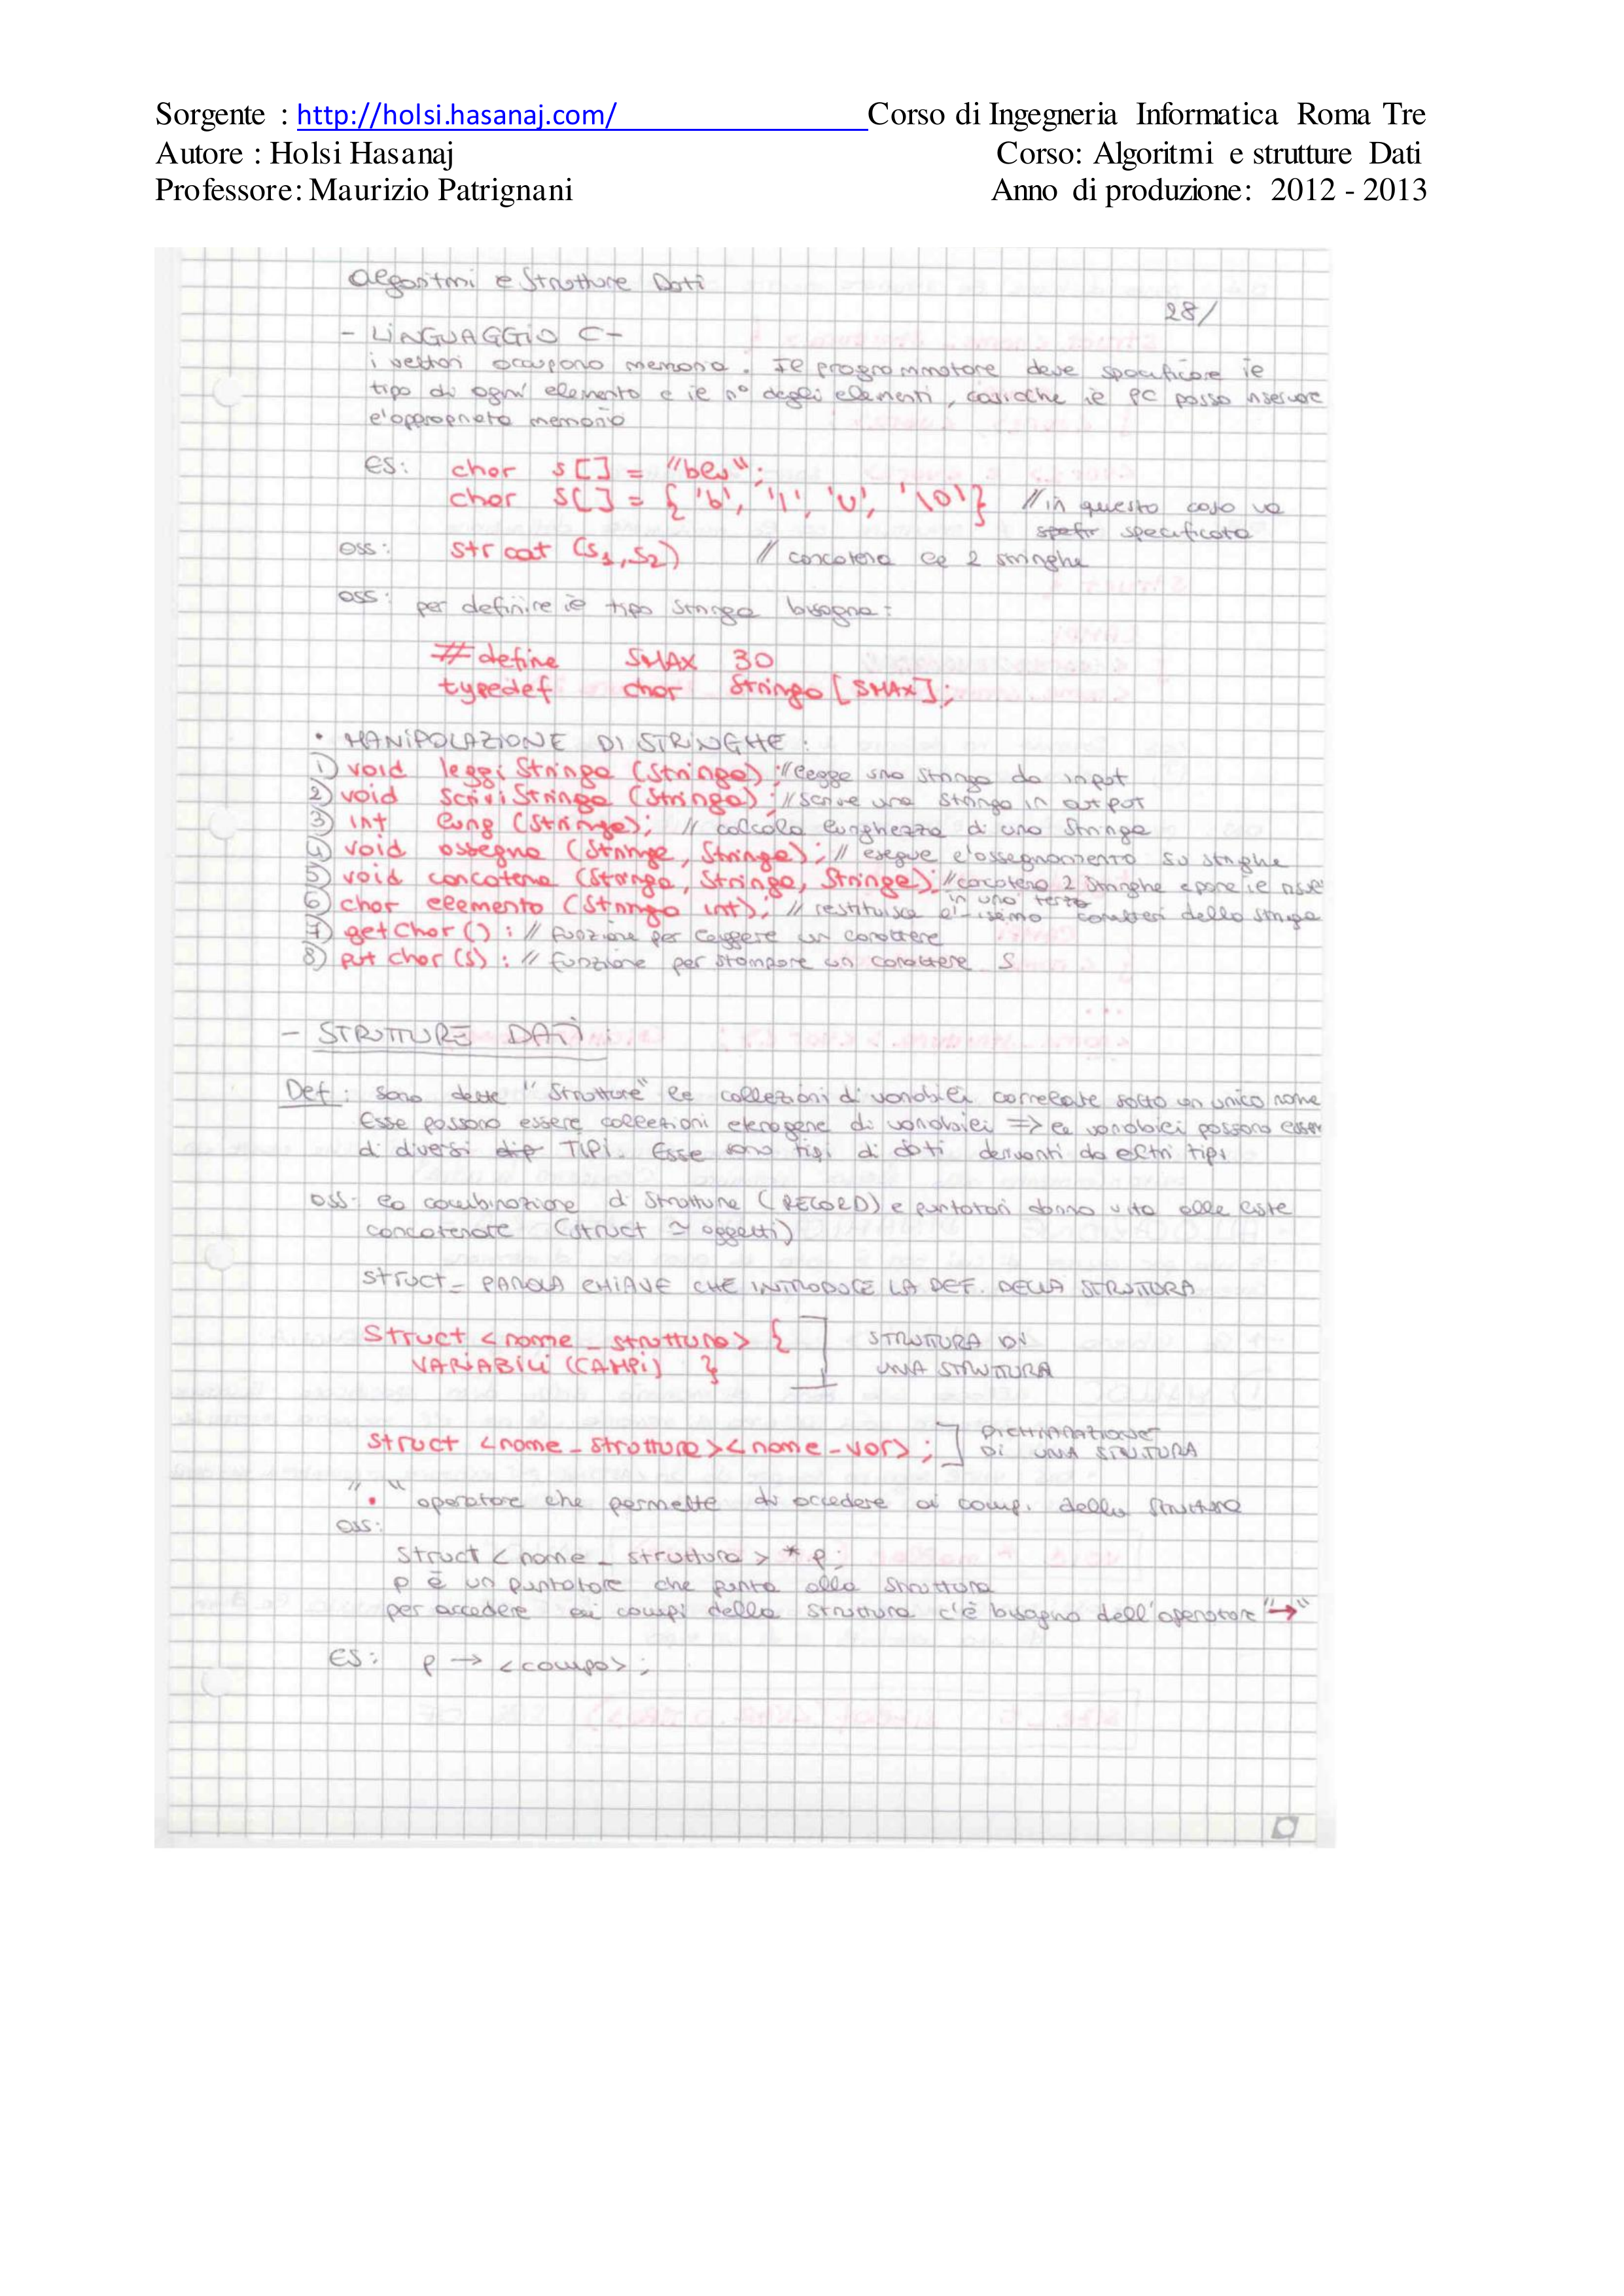 Sorgente : http://holsi.hasanaj.com/ Corso di Ingegneria Informatica Roma Tre
Autore : Holsi Hasanaj Corso: Algoritmi e strutture Dati
Professore: Maurizio Patrignani Anno di produzione: 2012 - 2013
Algoritmi e Strutture Dati
28/
- LINGUAGGIO C -
i vettori occupano memoria. Il programmatore deve specificare il
tipo di ogni elemento e il n° degli elementi, cosicche il PC possa riservare
l'appropriata memoria
ES: char s[] = "blu";
char s[] = { 'b', 'l', 'u', '\0'} // in questo caso va
specificato
oss: strcat (s1, s2) // concatena le 2 stringhe
oss: per definire il tipo stringa bisogna:
#define SMAX 30
typedef char Stringa [SMAX];
• MANIPOLAZIONE DI STRINGHE :
1) void leggiStringa (Stringa); // legge una stringa da input
2) void scriviStringa (Stringa); // scrive una stringa in output
3) int lung (Stringa); // calcola lunghezza di una stringa
4) void assegna (Stringa, Stringa); // esegue l'assegnamento su stringhe
5) void concatena (Stringa, Stringa, Stringa); // concatena 2 stringhe e pone il
in una terza
6) char elemento (Stringa int); // restituisce l'i-esimo caratteri della stringa
7) getchar () : // funzione per leggere un carattere
8) put char (s) : // funzione per stampare un carattere S
- STRUTTURE DATI :
Def : sono dette "Strutture" le collezioni di variabili correlate sotto un unico nome
Esse possono essere collezioni eterogene di variabili => le variabili possono esser
di diversi TIPI. Esse sono tipi di dati derivanti da altri tipi
oss: la combinazione di strutture (RECORD) e puntatori danno vita alle liste
concatenate (struct ≃ oggetti)
struct - PAROLA CHIAVE CHE INTRODUCE LA DEF. DELLA STRUTTURA
Struct <nome_struttura> { STRUTTURA DI
VARIABILI (CAMPI) } UNA STRUTTURA
struct <nome_struttura><nome_var>; DICHIARAZIONE
DI UNA STRUTTURA
" . " operatore che permette di accedere ai camp. della struttura
oss:
struct <nome_struttura> *p;
p è un puntatore che punta alla struttura
per accedere ai campi della struttura c'è bisogno dell'operatore "→"
ES: p → <campo>;